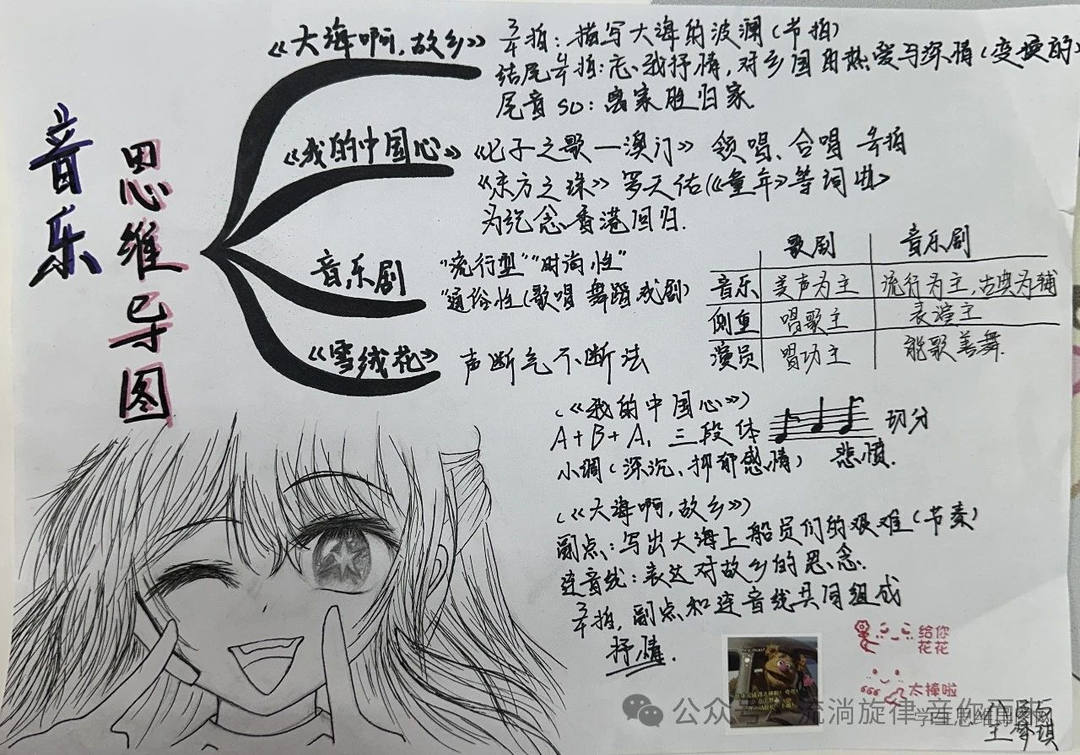 音乐
思维导图
《大海啊,故乡》
3/4拍:描写大海的波澜(节拍)
结尾4/4拍:忘我抒情,对乡国的热爱与深情(变换的)
尾音so:离家胜归家
《我的中国心》
《七子之歌—澳门》 领唱、合唱 4/4拍
《东方之珠》 罗大佑(《童年》等词曲)
为纪念香港回归.
音乐剧
"流行型""时尚性"
"通俗性(歌唱 舞蹈 戏剧)
歌剧 音乐剧
音乐 美声为主 流行为主,古典为辅
侧重 唱歌主 表演主
演员 唱功主 能歌善舞.
《雪绒花》 声断气不断法
(《我的中国心》)
A+B+A, 三段体 切分
小调(深沉、抑郁感情) 悲愤.
(《大海啊,故乡》)
副点:写出大海上船员们的艰难(节奏)
连音线:表达对故乡的思念.
3/4拍,副点和连音线共同组成
抒情.
给你花花
太棒啦
公众号 流淌旋律 音你而
学生思维导图